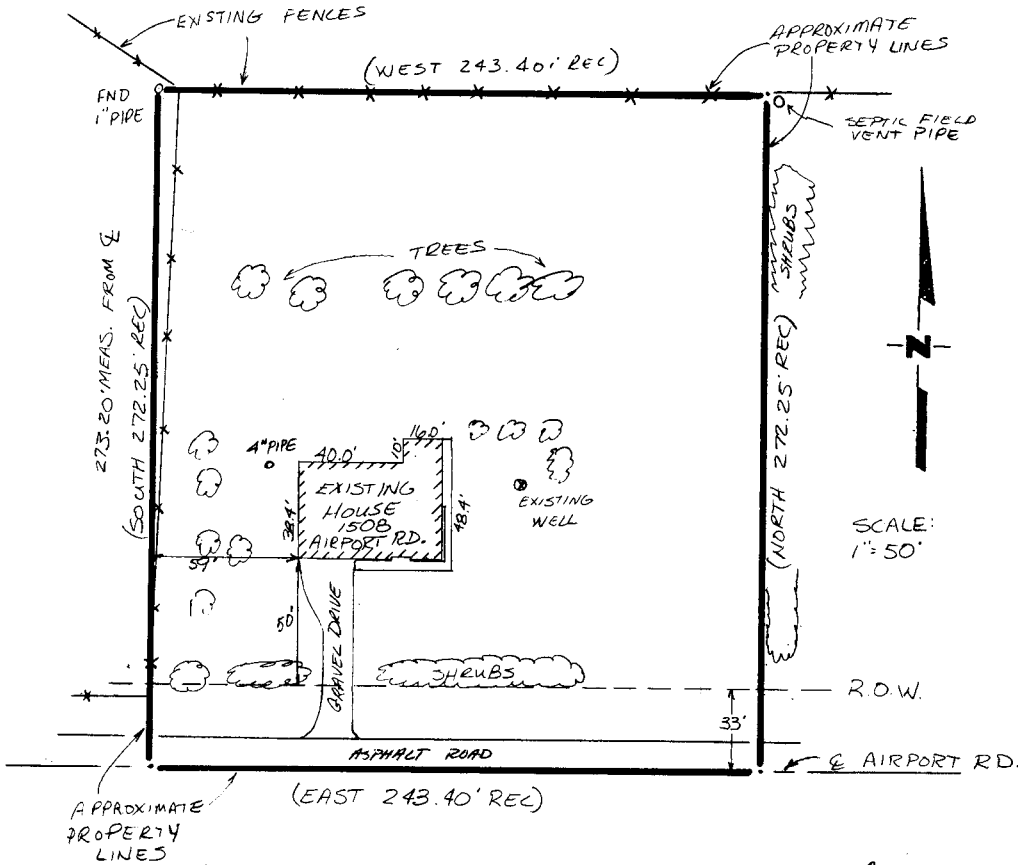 EXISTING FENCES
APPROXIMATE
PROPERTY LINES
(WEST 243.40' REC)
FND
1" PIPE
SEPTIC FIELD
VENT PIPE
SHRUBS
TREES
273.20' MEAS. FROM ℄
(SOUTH 272.25' REC)
(NORTH 272.25' REC)
N
4" PIPE
40.0'
10'
16.0'
EXISTING
HOUSE
1508
AIRPORT RD.
38.4'
48.4'
EXISTING
WELL
SCALE:
1"=50'
59'
50'
GRAVEL DRIVE
SHRUBS
R.O.W.
33'
ASPHALT ROAD
℄ AIRPORT RD.
(EAST 243.40' REC)
APPROXIMATE
PROPERTY
LINES